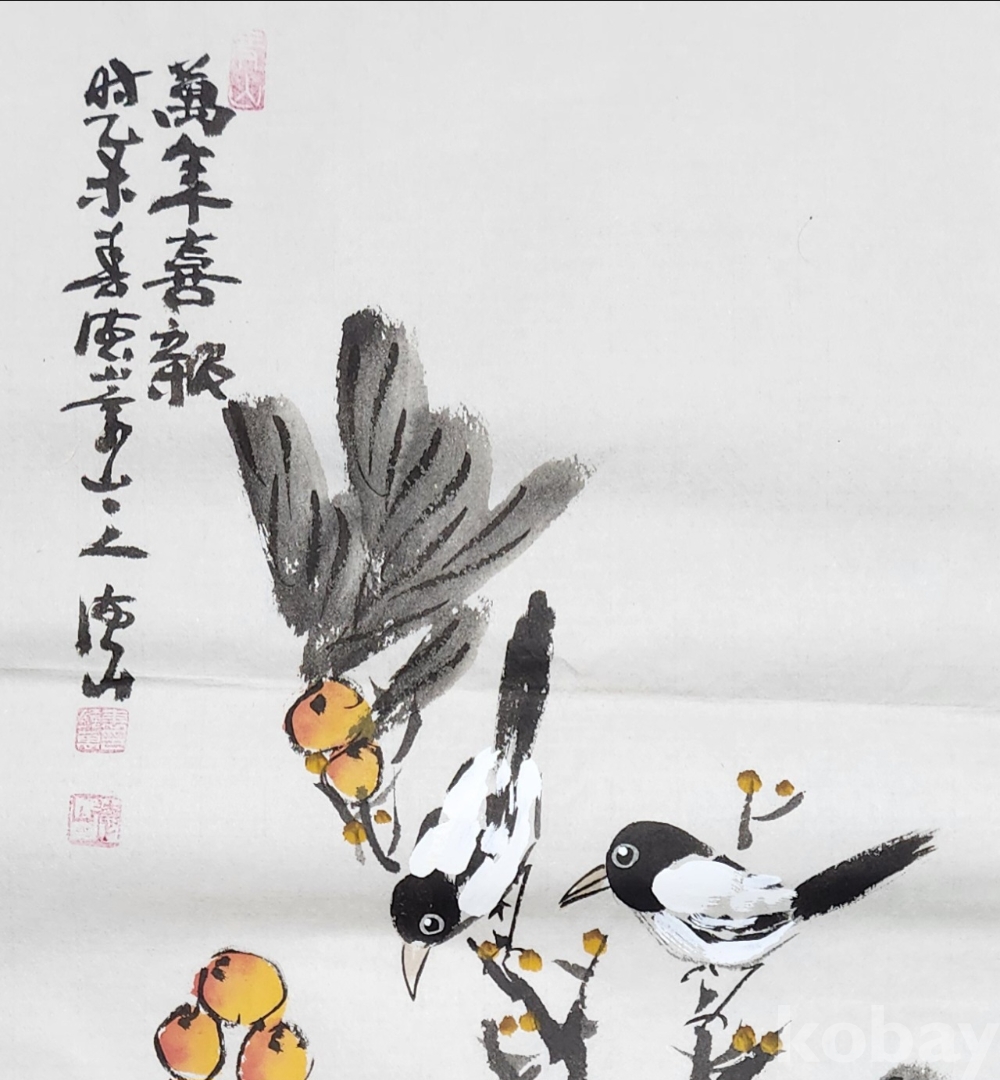 萬年喜報
時乙未春德崇山人 德山
kobay